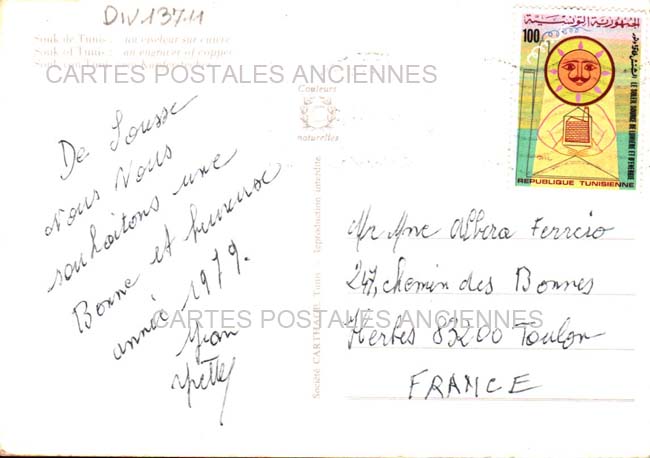 DIV13711
Souk de Tunis : un ciseleur sur cuivre
Souk of Tunis : an engraver of copper
CARTES POSTALES ANCIENNES
Couleurs
naturelles
De Sousse
Nous Vous
souhaitons une
Bonne et heureuse
année 1979.
CARTES POSTALES ANCIENNES
Société CARTHAGE Tunis
reproduction interdite
الجمهورية التونسية
100
LE SOLEIL SOURCE DE LUMIERE ET D'ENERGIE
REPUBLIQUE TUNISIENNE
Mr Mme Albera Ferrero
247, chemin des Bonnes
Herbes 83200 Toulon
FRANCE